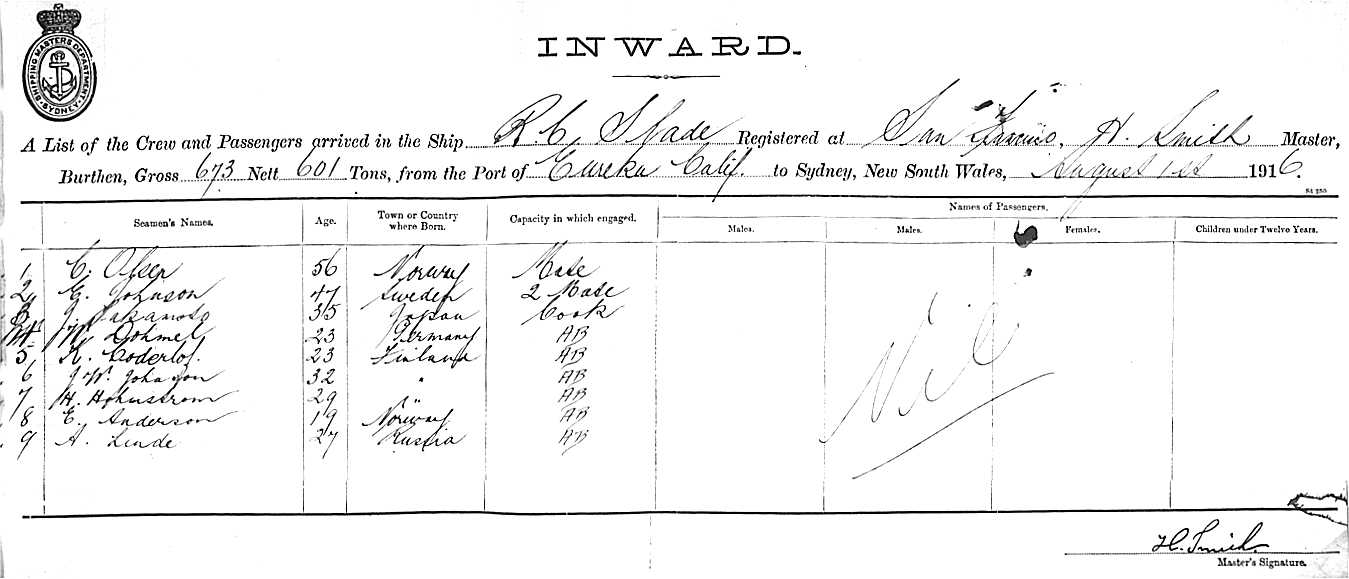 SHIPPING MASTERS DEPARTMENT SYDNEY
INWARD.
A List of the Crew and Passengers arrived in the Ship R. C. Slade Registered at San Francisco, H. Smith Master,
Burthen, Gross 673 Nett 601 Tons, from the Port of Eureka Calif. to Sydney, New South Wales, August 1st 1916.
Names of Passengers.
Seamen's Names. Age. Town or Country where Born. Capacity in which engaged. Males. Males. Females. Children under Twelve Years.
1 C. Olsen 56 Norway Mate
2 G. Johnson 47 Sweden 2 Mate
3 J. Sakamoto 35 Japan Cook
4 W. Dohmel 23 Germany AB
5 K. Coderlof. 23 Finland AB
6 J. W. Johanson 32 " AB
7 H. Hohnstrom 29 " AB
8 E. Anderson 19 Norway AB
9 A. Linde 27 Russia AB
Nil
H. Smith
Master's Signature.